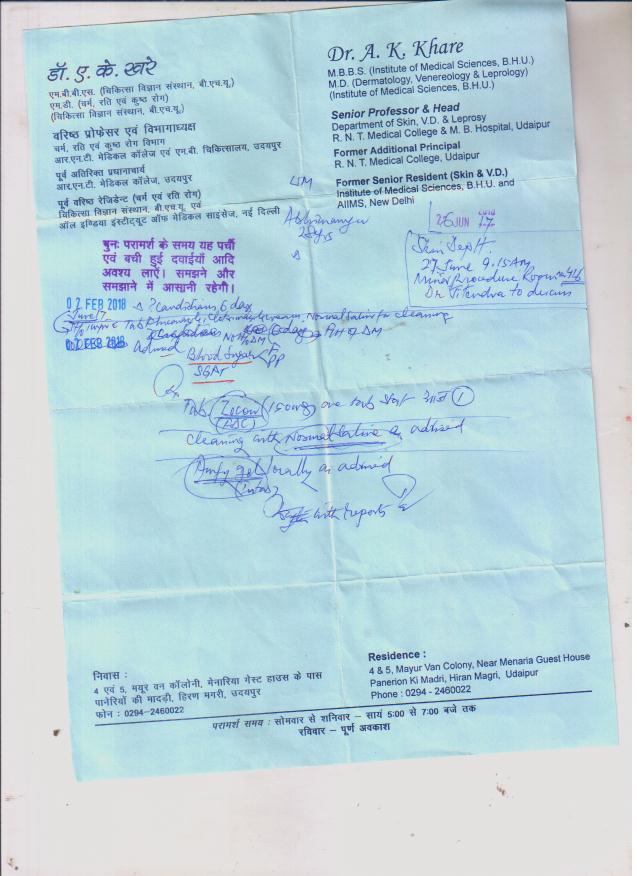 डॉ. ए. के. खरे
एम.बी.बी.एस. (चिकित्सा विज्ञान संस्थान, बी.एच.यू.)
एम.डी. (चर्म, रति एवं कुष्ठ रोग)
(चिकित्सा विज्ञान संस्थान, बी.एच.यू.)
वरिष्ठ प्रोफेसर एवं विभागाध्यक्ष
चर्म, रति एवं कुष्ठ रोग विभाग
आर.एन.टी. मेडिकल कॉलेज एवं एम.बी. चिकित्सालय, उदयपुर
पूर्व अतिरिक्त प्रधानाचार्य
आर.एन.टी. मेडिकल कॉलेज, उदयपुर
पूर्व वरिष्ठ रेजिडेन्ट (चर्म एवं रति रोग)
चिकित्सा विज्ञान संस्थान, बी.एच.यू. एवं
ऑल इण्डिया इंस्टीट्यूट ऑफ मेडिकल साइसेज, नई दिल्ली
Dr. A. K. Khare
M.B.B.S. (Institute of Medical Sciences, B.H.U.)
M.D. (Dermatology, Venereology & Leprology)
(Institute of Medical Sciences, B.H.U.)
Senior Professor & Head
Department of Skin, V.D. & Leprosy
R. N. T. Medical College & M. B. Hospital, Udaipur
Former Additional Principal
R. N. T. Medical College, Udaipur
Former Senior Resident (Skin & V.D.)
Institute of Medical Sciences, B.H.U. and
AIIMS, New Delhi
Abhimanyu
26 JUN
Skin Deptt
27 June 9.15 AM
Minor Procedure Room
Dr. Jitendra to discuss
पुनः परामर्श के समय यह पर्ची
एवं बची हुई दवाईयाँ आदि
अवश्य लाएँ। समझने और
समझाने में आसानी रहेगी।
02 FEB 2018 ? Candidiasis 6 day
Normal Saline for cleaning
02 FEB 2018 Advised Blood Sugar F PP
Tab. Zocon (150mg) one tab stat 1
cleaning with Normal Saline as advised
gel locally as advised
with reports
निवास :
4 एवं 5, मयूर वन कॉलोनी, मेनारिया गेस्ट हाउस के पास
पानेरियों की मादड़ी, हिरण मगरी, उदयपुर
फोन : 0294-2460022
Residence :
4 & 5, Mayur Van Colony, Near Menaria Guest House
Panerion Ki Madri, Hiran Magri, Udaipur
Phone : 0294 - 2460022
परामर्श समय : सोमवार से शनिवार – सायं 5:00 से 7:00 बजे तक
रविवार – पूर्ण अवकाश